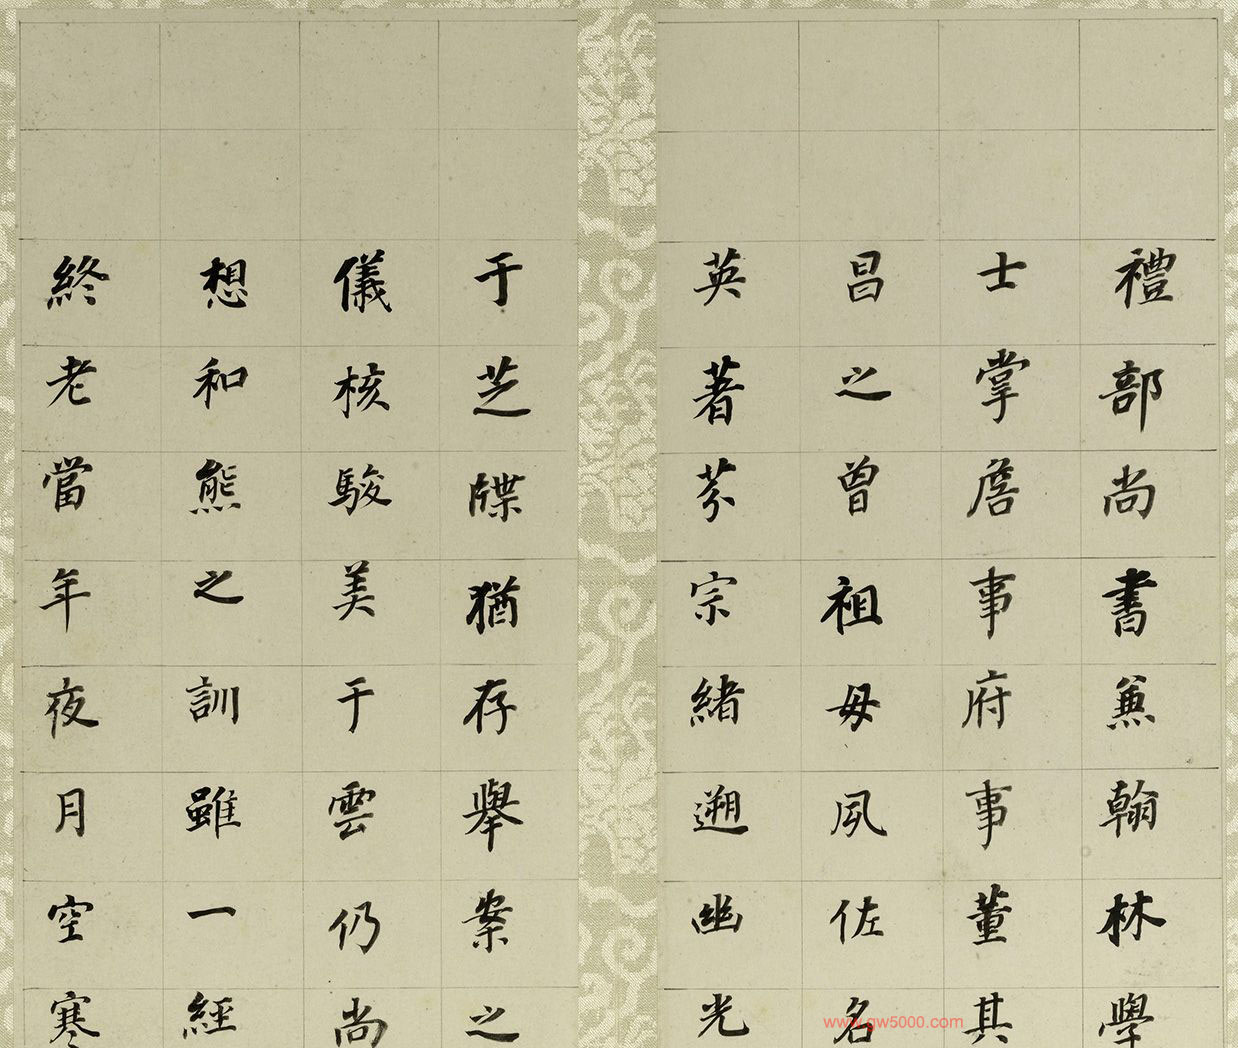 禮部尚書兼翰林學
士掌詹事府事董其
昌之曾祖母夙佐名
英著芬宗緒遡幽光
于芝牒猶存舉案之
儀核駿美于雲仍尚
想和熊之訓雖一經
終老當年夜月空寒
www.gw5000.com